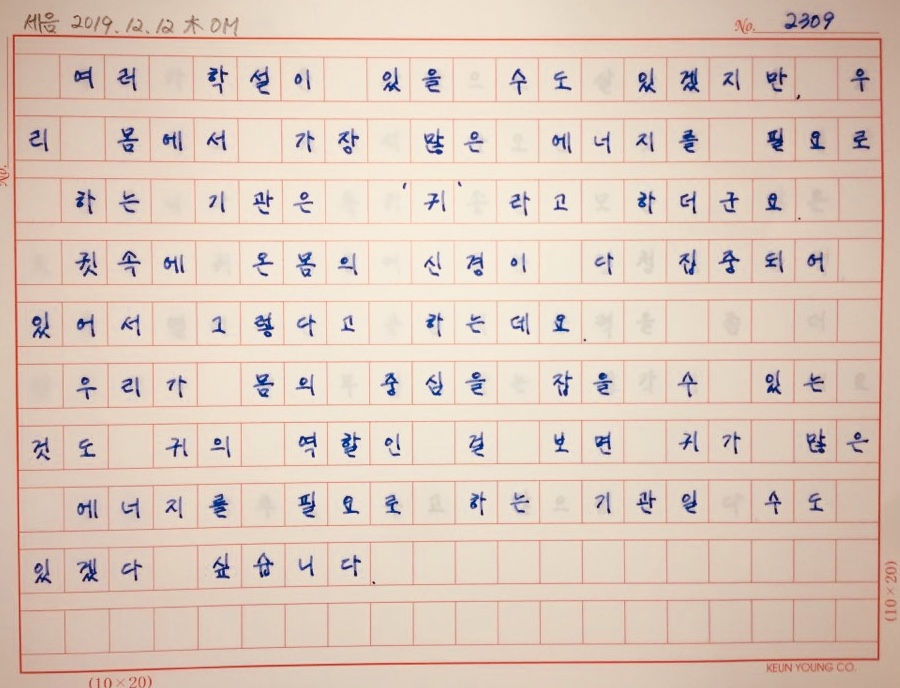 세음 2019.12.12 木 OM
No. 2309
여러 학설이 있을 수도 있겠지만, 우
리 몸에서 가장 많은 에너지를 필요로
하는 기관은 '귀'라고 하더군요.
귓속에 온몸의 신경이 다 집중되어
있어서 그렇다고 하는데요.
우리가 몸의 중심을 잡을 수 있는
것도 귀의 역할인 걸 보면 귀가 많은
에너지를 필요로 하는 기관일 수도
있겠다 싶습니다.
No.
(10×20)
KEUN YOUNG CO.
(10×20)